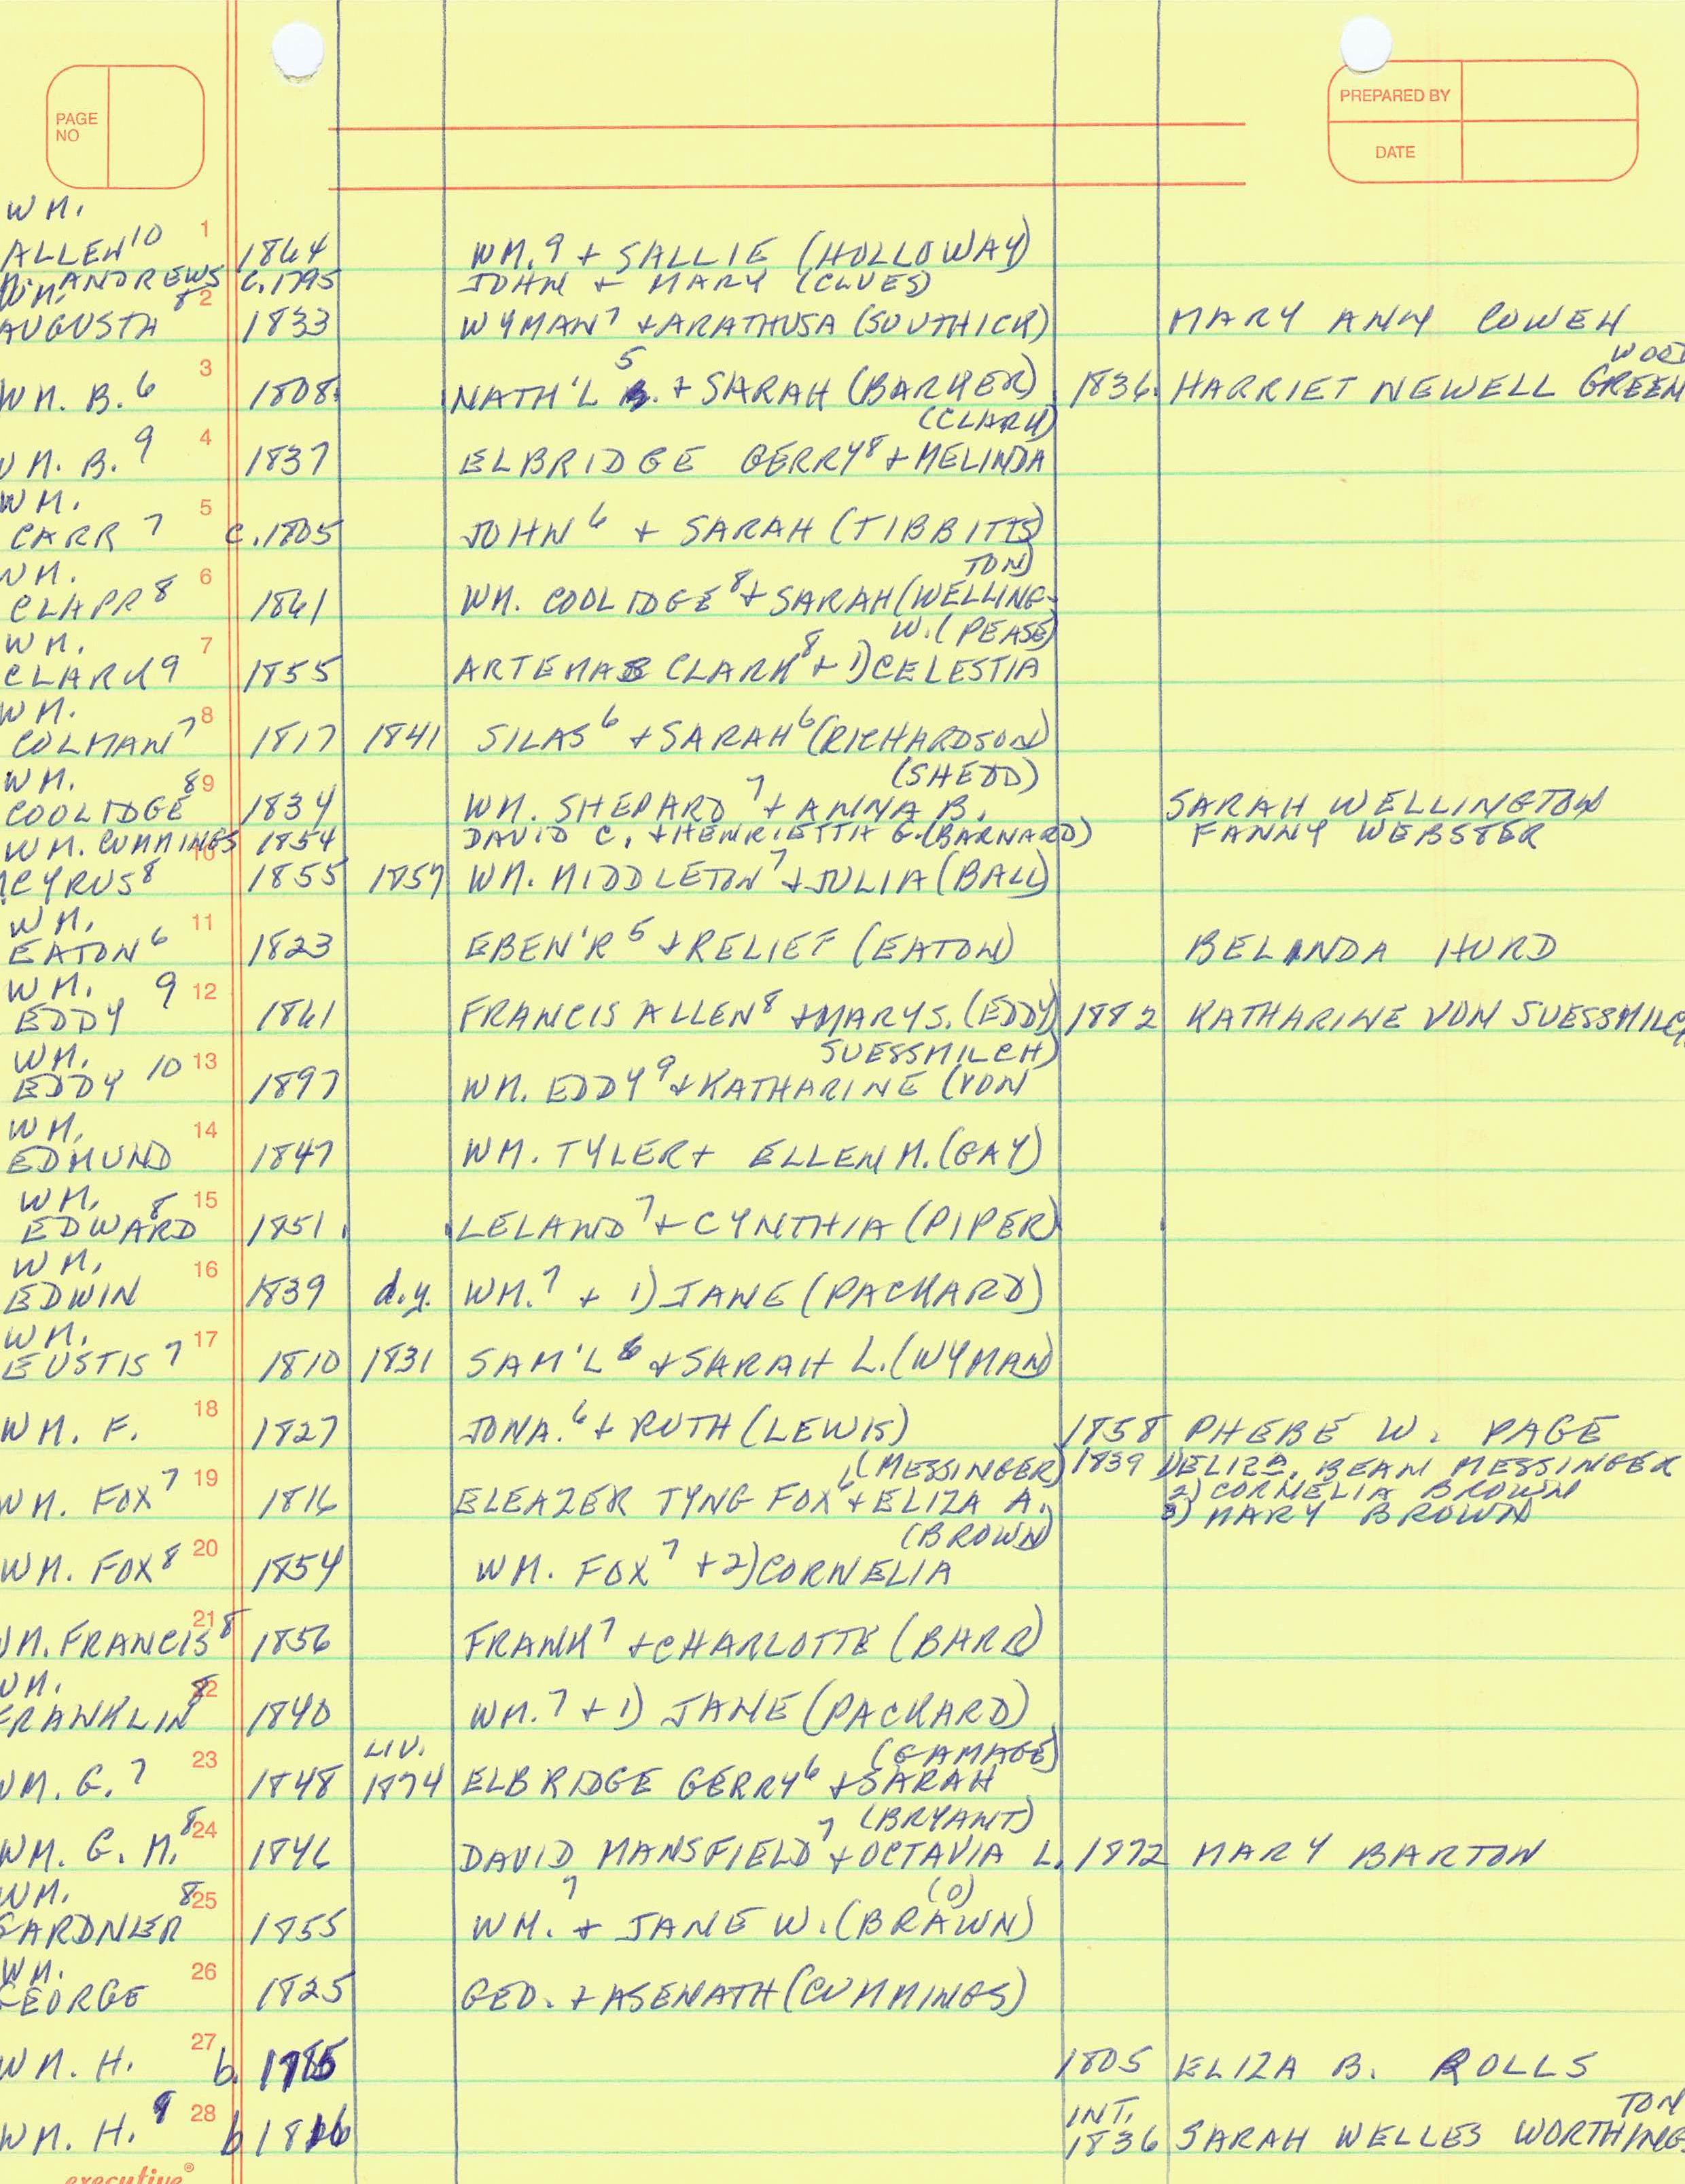 PAGE NO
PREPARED BY
DATE
WM.
ALLEN10 1 1864 WM.9 + SALLIE (HOLLOWAY)
WM. ANDREWS C.1795 JOHN + MARY (CLUES)
AUGUSTA 8 2 1833 WYMAN7 + ARATHUSA (SOUTHICK) MARY ANN COWEN
5 WOOD
WM. B.6 3 1808 NATH'L B. + SARAH (BARKER) 1836 HARRIET NEWELL GREEN
(CLARK)
WM. B.9 4 1837 ELBRIDGE GERRY8 + MELINDA
WM.
CARR7 5 C.1805 JOHN6 + SARAH (TIBBITTS)
WM. TON)
CLAPP8 6 1861 WM. COOLIDGE8 + SARAH (WELLING-
WM. W. (PEASE)
CLARK9 7 1855 ARTEMAS CLARK8 + 1) CELESTIA
WM.
COLMAN7 8 1817 1841 SILAS6 + SARAH6 (RICHARDSON)
WM. (SHEDD)
COOLIDGE8 9 1834 WM. SHEPARD7 + ANNA B. SARAH WELLINGTON
WM. CUMMINGS 1854 DAVID C. + HENRIETTA G. (BARNARD) FANNY WEBSTER
CYRUS8 10 1855 1857 WM. MIDDLETON7 + JULIA (BALL)
WM.
EATON6 11 1823 EBEN'R5 + RELIEF (EATON) BELINDA HURD
WM.
EDDY9 12 1861 FRANCIS ALLEN8 + MARY S. (EDDY) 1882 KATHARINE VON SUESSMILCH
WM. SUESSMILCH)
EDDY10 13 1897 WM. EDDY9 + KATHARINE (VON
WM.
EDMUND 14 1847 WM. TYLER + ELLEN M. (GAY)
WM.
EDWARD8 15 1851 LELAND7 + CYNTHIA (PIPER)
WM.
EDWIN 16 1839 d.y. WM.7 + 1) JANE (PACKARD)
WM.
EUSTIS7 17 1810 1831 SAM'L6 + SARAH L. (WYMAN)
WM. F. 18 1827 JONA.6 + RUTH (LEWIS) 1858 PHEBE W. PAGE
(MESSINGER) 1839 1) ELIZA. BEAN MESSINGER
WM. FOX7 19 1816 ELEAZER TYNG FOX6 + ELIZA A. 2) CORNELIA BROWN
3) MARY BROWN
(BROWN)
WM. FOX8 20 1854 WM. FOX7 + 2) CORNELIA
WM. FRANCIS8 21 1856 FRANK7 + CHARLOTTE (BARR)
WM.
FRANKLIN8 22 1840 WM.7 + 1) JANE (PACKARD)
LIV. (GAMAGE)
WM. G.7 23 1848 1874 ELBRIDGE GERRY6 + SARAH
(BRYANT)
WM. G. M.8 24 1846 DAVID MANSFIELD7 + OCTAVIA L. 1872 MARY BARTON
WM. (O)
GARDNER8 25 1855 WM.7 + JANE W. (BRAWN)
WM.
GEORGE 26 1825 GEO. + ASENATH (CUMMINGS)
WM. H. 27 b. 1785 1805 ELIZA B. ROLLS
INT. TON
WM. H.9 28 b 1816 1836 SARAH WELLES WORTHING
executive®